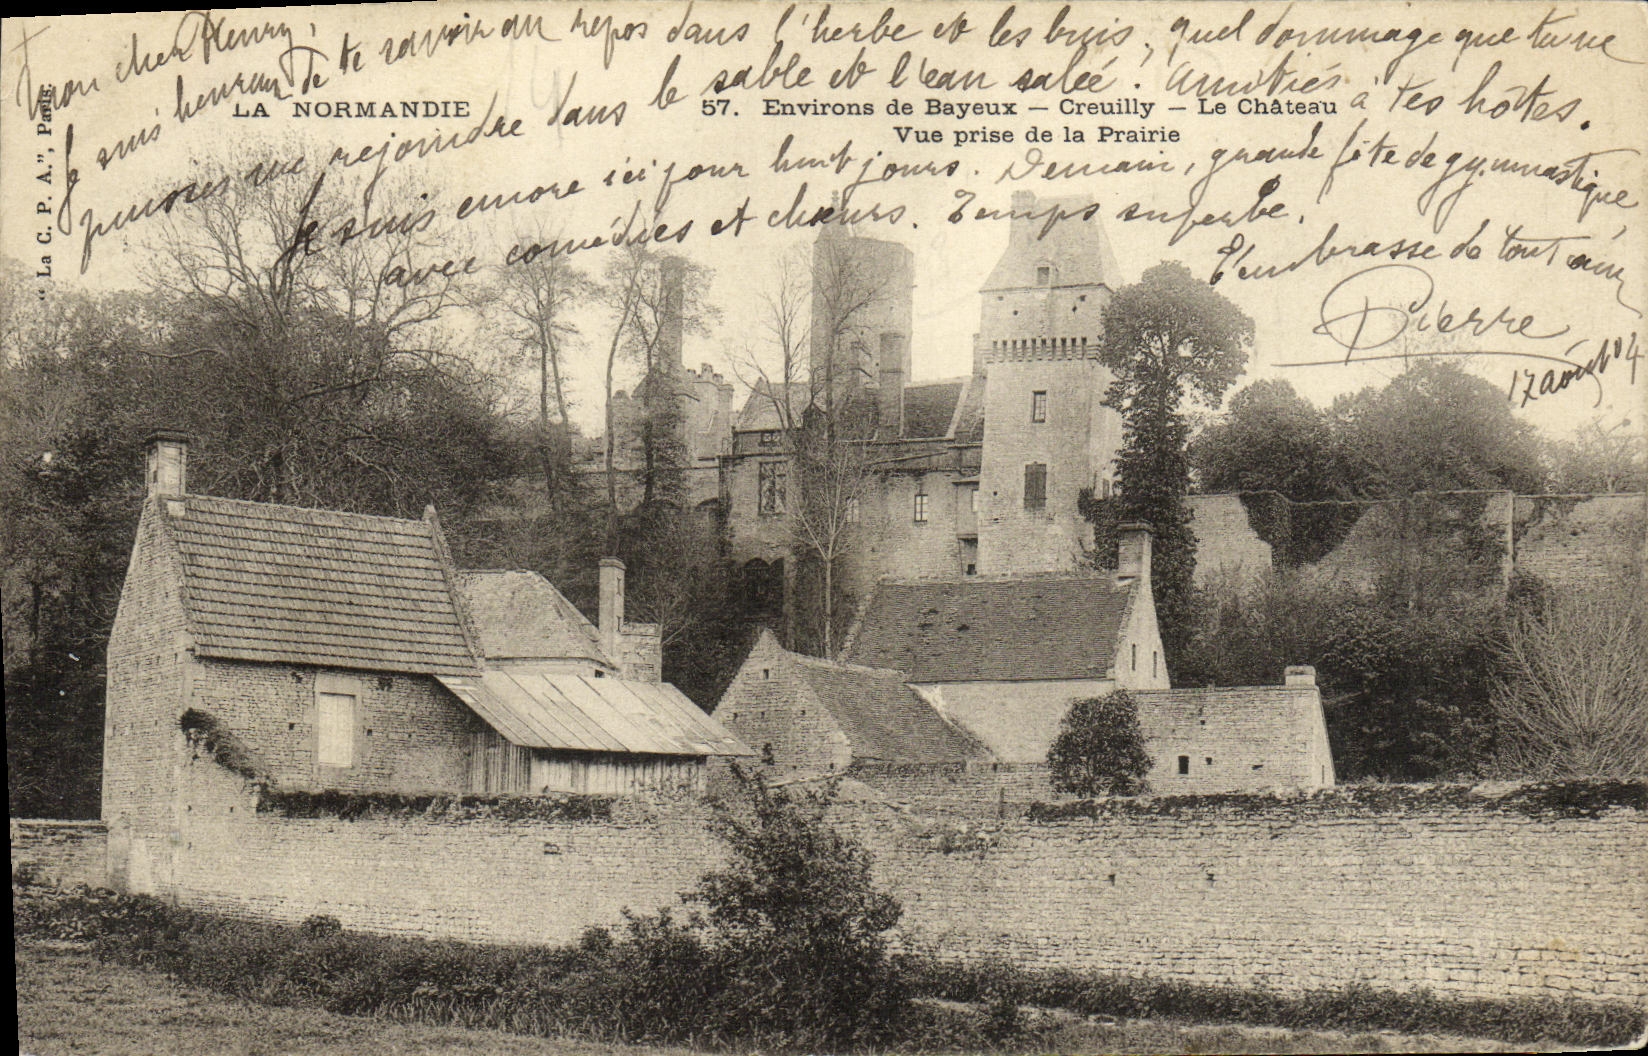 Mon cher Henry,
Je suis heureux de te savoir au repos dans l'herbe et les buis, quel dommage que tu ne
puisses me rejoindre dans le sable et l'eau salée! Amitiés à tes hôtes.
Je suis encore ici pour huit jours. Demain, grande fête de gymnastique,
avec comédies et chœurs. Temps superbe.
T'embrasse de tout cœur
Pierre
17 août 04
LA NORMANDIE
57. Environs de Bayeux — Creuilly — Le Château
Vue prise de la Prairie
"La C. P. A.", Paris